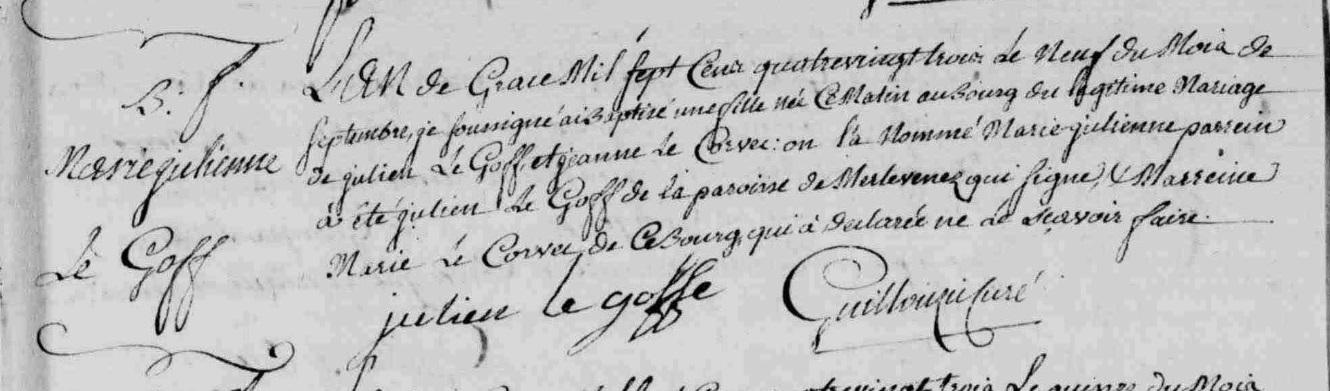 B. f.
Marie julienne
Le Goff
L'an de Grace Mil sept Cent quatrevingt trois Le Neuf du Mois de
septembre, je soussigné ai Baptisé une fille née Ce Matin au Bourg du légitime Mariage
de julien Le Goff et jeanne Le Corvec: on l'a Nommé Marie-julienne parrein
à été julien Le Goff de la paroisse de Merlevenez qui signe, & Marreine
Marie Le Corvec de Ce Bourg, qui à declarée ne Le sçavoir faire.
julien le goffe
curé
quinze du Mois